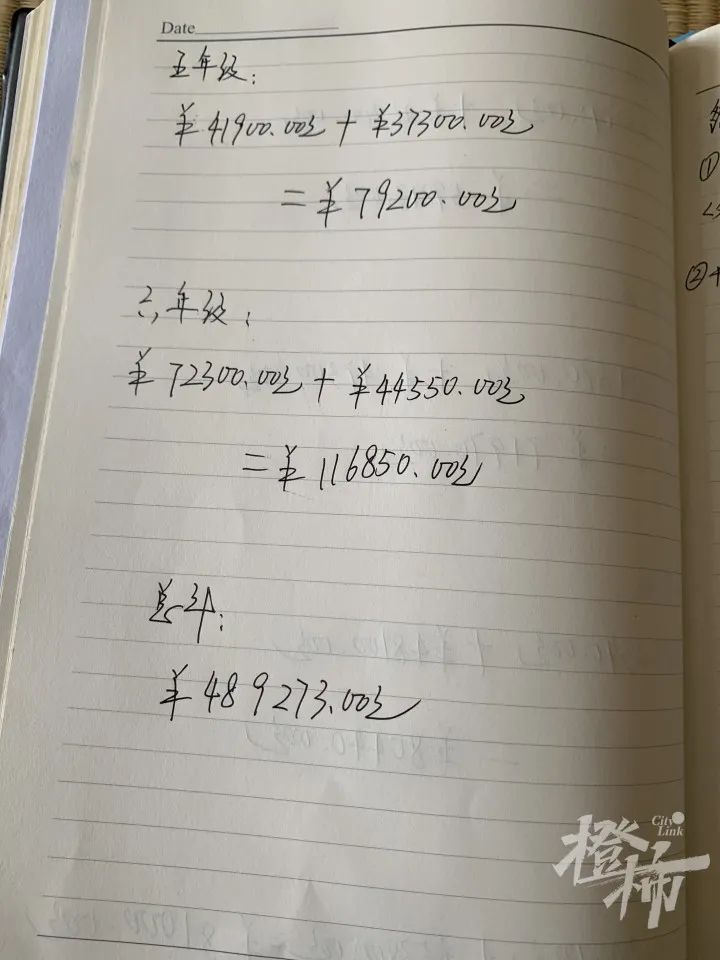 Date
五年级:
¥41900.00元 + ¥37300.00元
= ¥79200.00元
六年级:
¥72300.00元 + ¥44550.00元
= ¥116850.00元
总计:
¥489273.00元
①
②
City Link
橙柿